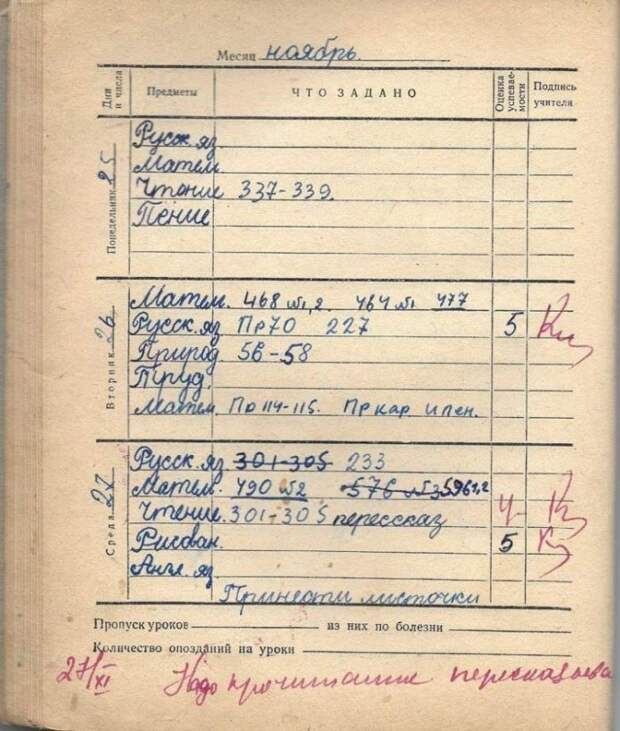 Месяц ноябрь.
Дни и числа Предметы ЧТО ЗАДАНО Оценка успеваемости Подпись учителя
Понедельник 25
Русск. яз.
Матем.
Чтение 337-339.
Пение
Вторник 26
Матем. 468 №1,2. 464 №1 477
Русск. яз Пр70 227 5
Природ. 56-58
Труд.
Матем. По 114-115. Пр кар и лен.
Среда 27
Русск. яз 301-305 233
Матем. 490 №2 576 №3 596 1,2
Чтение 301-305 перессказ 4-
Рисован. 5
Англ. яз
Принести листочки
Пропуск уроков из них по болезни
Количество опозданий на уроки
27/XI Надо прочитанное пересказыва